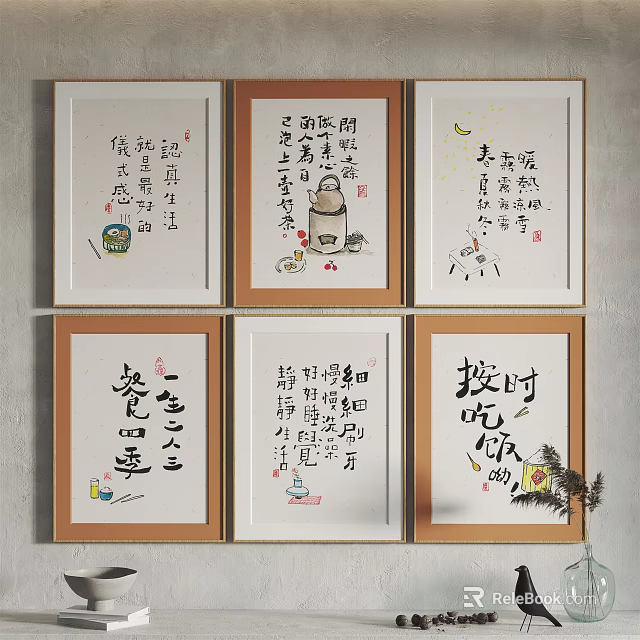 認真生活
就是最好的
儀式感
閒暇之餘
做个素心
的人為自
己泡上一壺好茶。
春夏秋冬
一生二人三
餐四季
細細刷牙
慢慢洗澡
好好睡覺
靜靜生活
按时
吃
饭
呦！
ReleBook.com